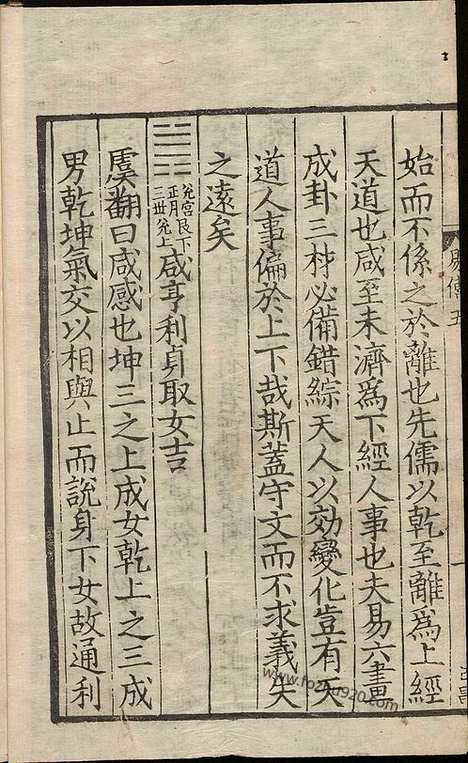 始而不係之於離也先儒以乾至離為上經
天道也咸至未濟為下經人事也夫易六畫
成卦三材必備錯綜天人以効變化豈有天
道人事偏於上下哉斯蓋守文而不求義失
之遠矣
兊宮 正月
艮下 兊上
咸亨利貞取女吉
虞翻曰咸感也坤三之上成女乾上之三成
男乾坤氣交以相與止而說男下女故通利
易傳五
www.fozhu920.com